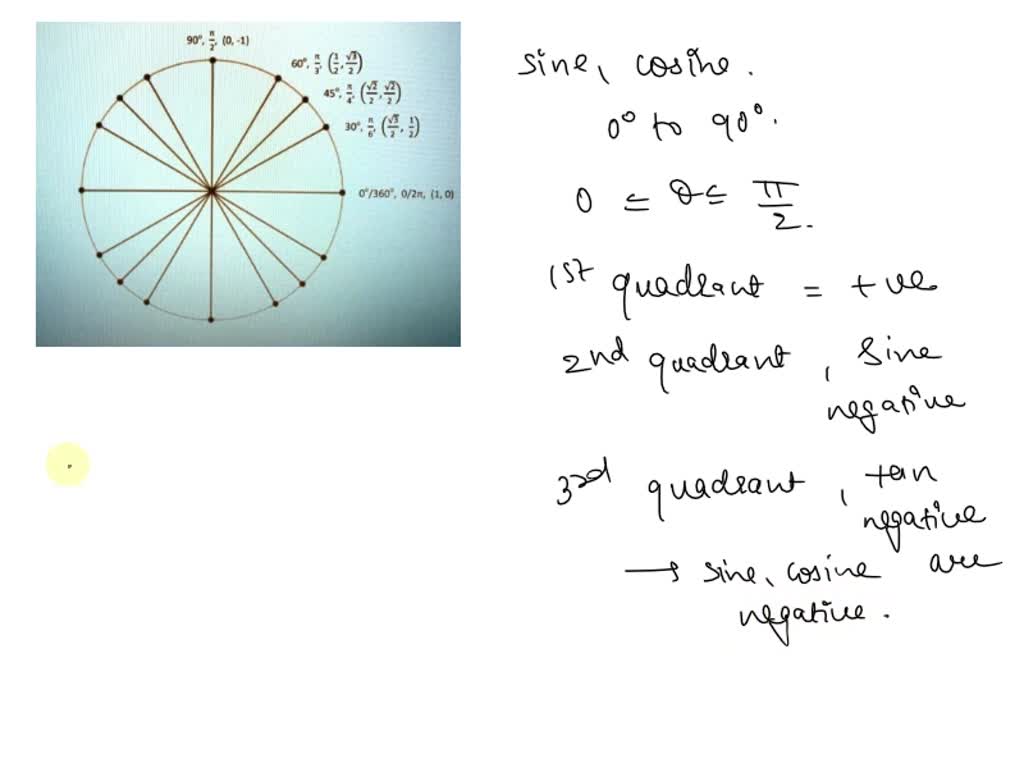 90°, π/2, (0, -1)
60°, π/3, (1/2, √3/2)
45°, π/4, (√2/2, √2/2)
30°, π/6, (√3/2, 1/2)
0°/360°, 0/2π, (1, 0)
sine, cosine.
0° to 90°.
0 ≤ θ ≤ π/2.
1st quadrant = +ve
2nd quadrant, sine
negative
3rd quadrant, tan
negative
→ sine, cosine are
negative.